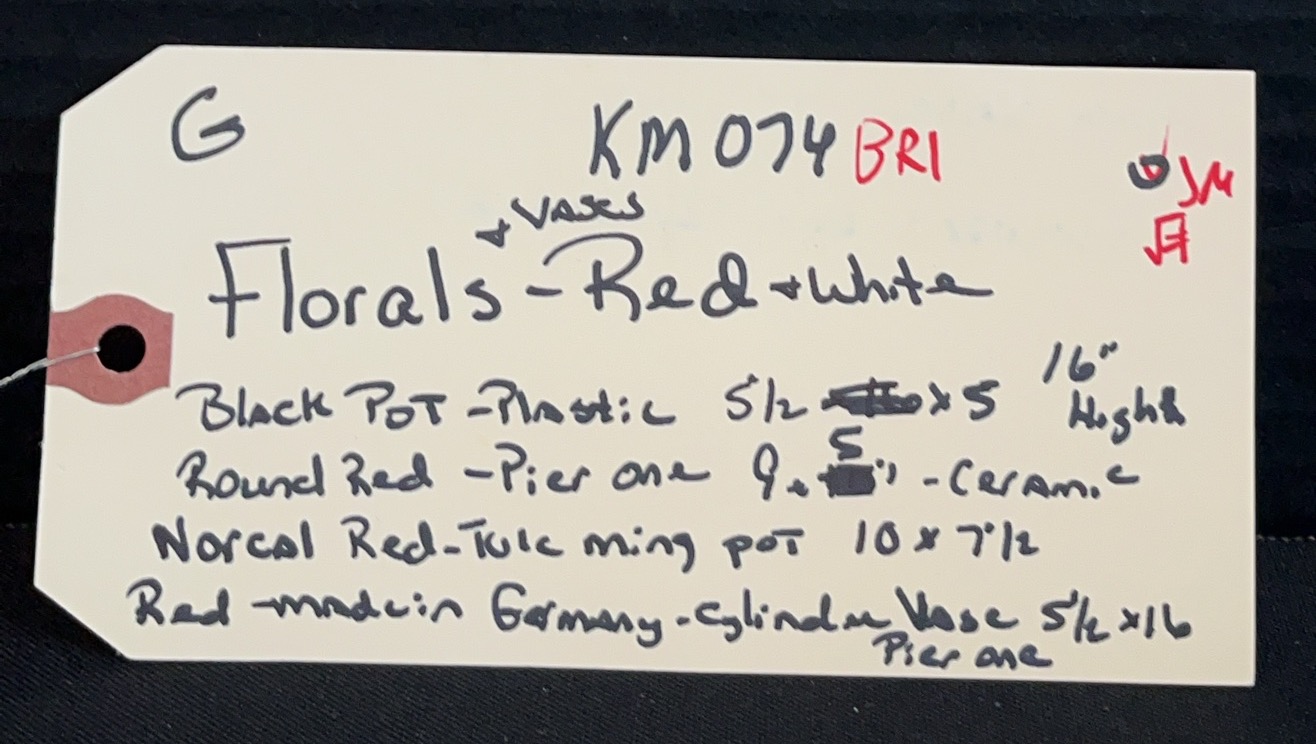 G KM074 BR1 JM
+ VASES
Florals - Red + White
Black Pot - Plastic 5 1/2 x 5 16" Hight
Round Red - Pier one 9 x 5 - Ceramic
Norcal Red - ming pot 10 x 7 1/2
Red - made in Germany - Cylinder Vase 5 1/2 x 16
Pier one